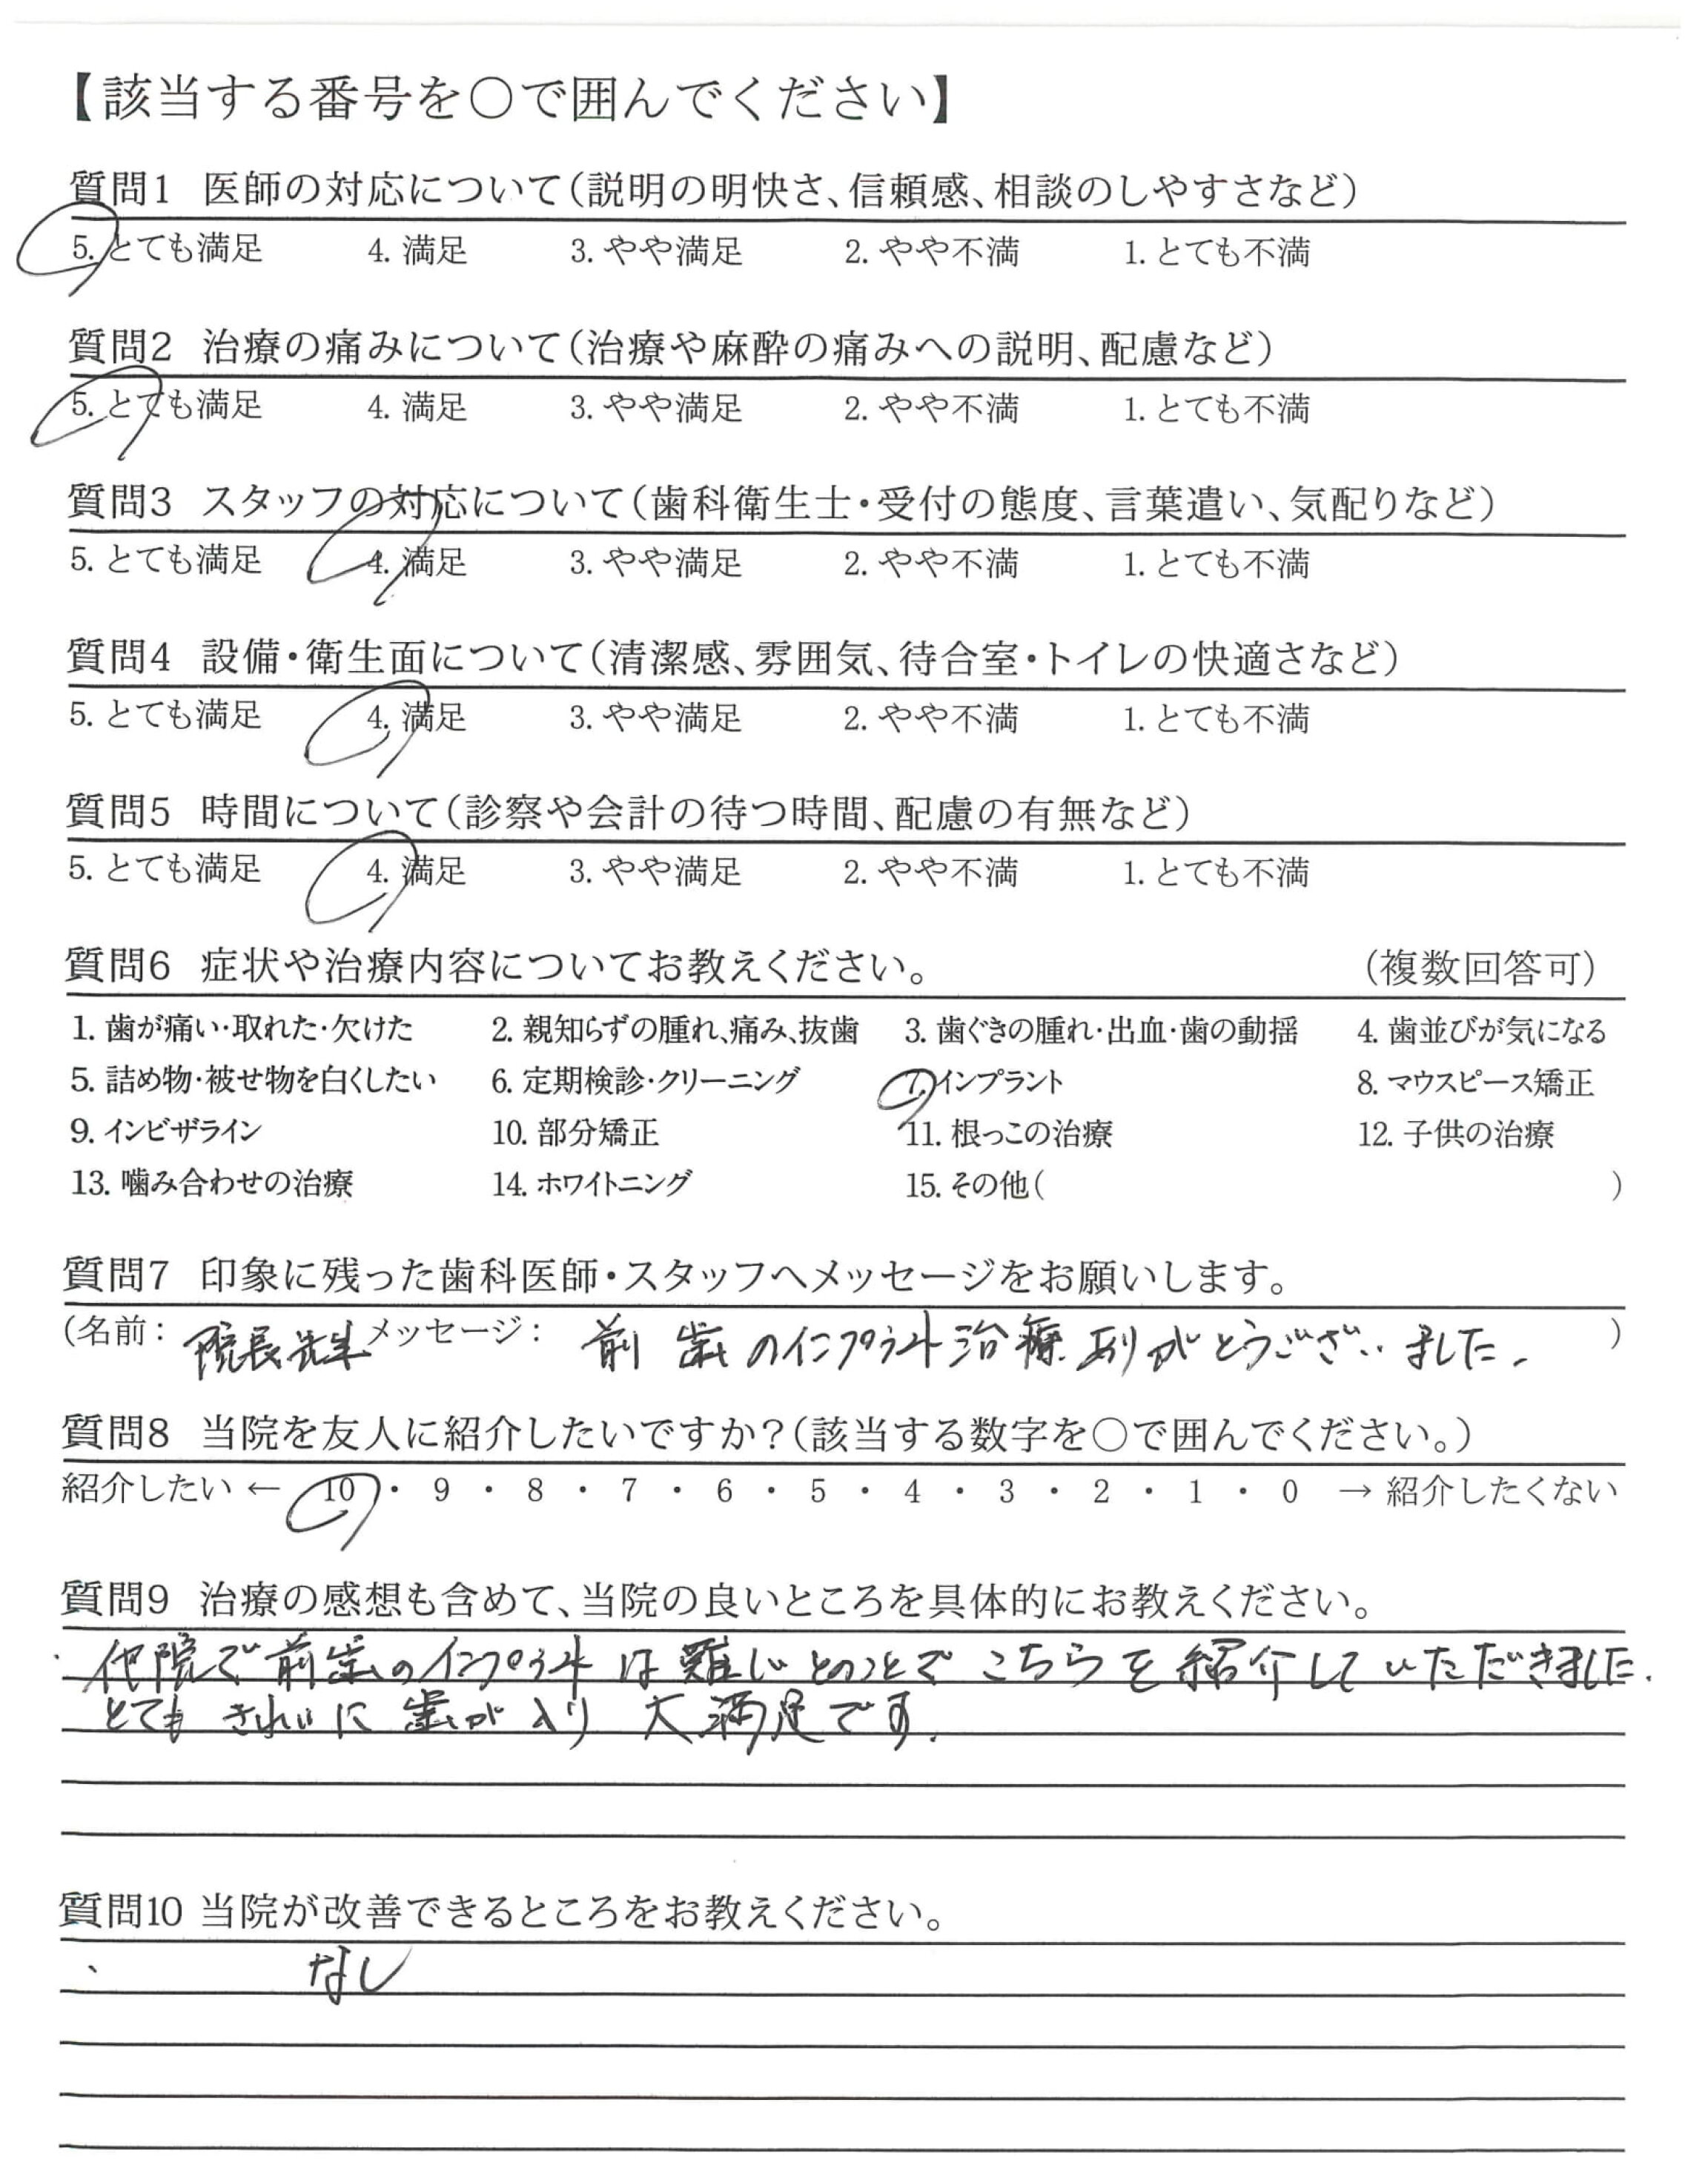 【該当する番号を○で囲んでください】
質問1 医師の対応について(説明の明快さ、信頼感、相談のしやすさなど)
5. とても満足 4. 満足 3. やや満足 2. やや不満 1. とても不満
質問2 治療の痛みについて(治療や麻酔の痛みへの説明、配慮など)
5. とても満足 4. 満足 3. やや満足 2. やや不満 1. とても不満
質問3 スタッフの対応について(歯科衛生士・受付の態度、言葉遣い、気配りなど)
5. とても満足 4. 満足 3. やや満足 2. やや不満 1. とても不満
質問4 設備・衛生面について(清潔感、雰囲気、待合室・トイレの快適さなど)
5. とても満足 4. 満足 3. やや満足 2. やや不満 1. とても不満
質問5 時間について(診察や会計の待つ時間、配慮の有無など)
5. とても満足 4. 満足 3. やや満足 2. やや不満 1. とても不満
質問6 症状や治療内容についてお教えください。 (複数回答可)
1. 歯が痛い・取れた・欠けた 2. 親知らずの腫れ、痛み、抜歯 3. 歯ぐきの腫れ・出血・歯の動揺 4. 歯並びが気になる
5. 詰め物・被せ物を白くしたい 6. 定期検診・クリーニング 7. インプラント 8. マウスピース矯正
9. インビザライン 10. 部分矯正 11. 根っこの治療 12. 子供の治療
13. 噛み合わせの治療 14. ホワイトニング 15. その他( )
質問7 印象に残った歯科医師・スタッフへメッセージをお願いします。
(名前: 院長先生 メッセージ: 前歯のインプラント治療ありがとうございました。 )
質問8 当院を友人に紹介したいですか?(該当する数字を○で囲んでください。)
紹介したい ← 10 ・ 9 ・ 8 ・ 7 ・ 6 ・ 5 ・ 4 ・ 3 ・ 2 ・ 1 ・ 0 → 紹介したくない
質問9 治療の感想も含めて、当院の良いところを具体的にお教えください。
・他院で前歯のインプラントは難しいとのことでこちらを紹介していただきました。
とてもきれいに歯が入り大満足です。
質問10 当院が改善できるところをお教えください。
、 なし